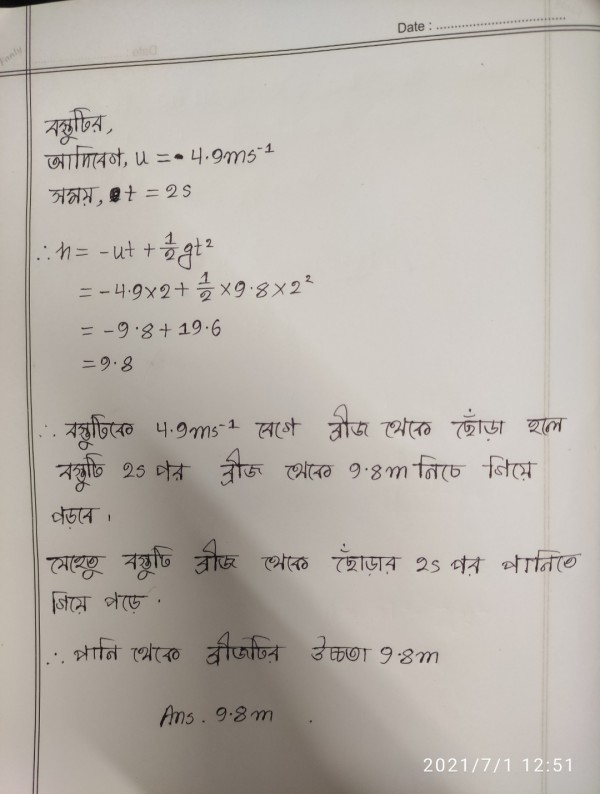 Date :
বস্তুটির,
আদিবেগ, u = - 4.9ms⁻¹
সময়, t = 2s
∴ h = -ut + 1/2 gt²
= -4.9×2 + 1/2 ×9.8×2²
= -9.8 + 19.6
= 9.8
∴ বস্তুটিকে 4.9ms⁻¹ বেগে ব্রীজ থেকে ছোঁড়া হলে
বস্তুটি 2s পর ব্রীজ থেকে 9.8m নিচে গিয়ে
পড়বে।
যেহেতু বস্তুটি ব্রীজ থেকে ছোঁড়ার 2s পর পানিতে
গিয়ে পড়ে.
∴ পানি থেকে ব্রীজটির উচ্চতা 9.8m
Ans. 9.8m .
2021/7/1 12:51